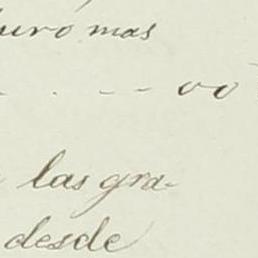 duró mas
. . - - oo
las gra-
desde